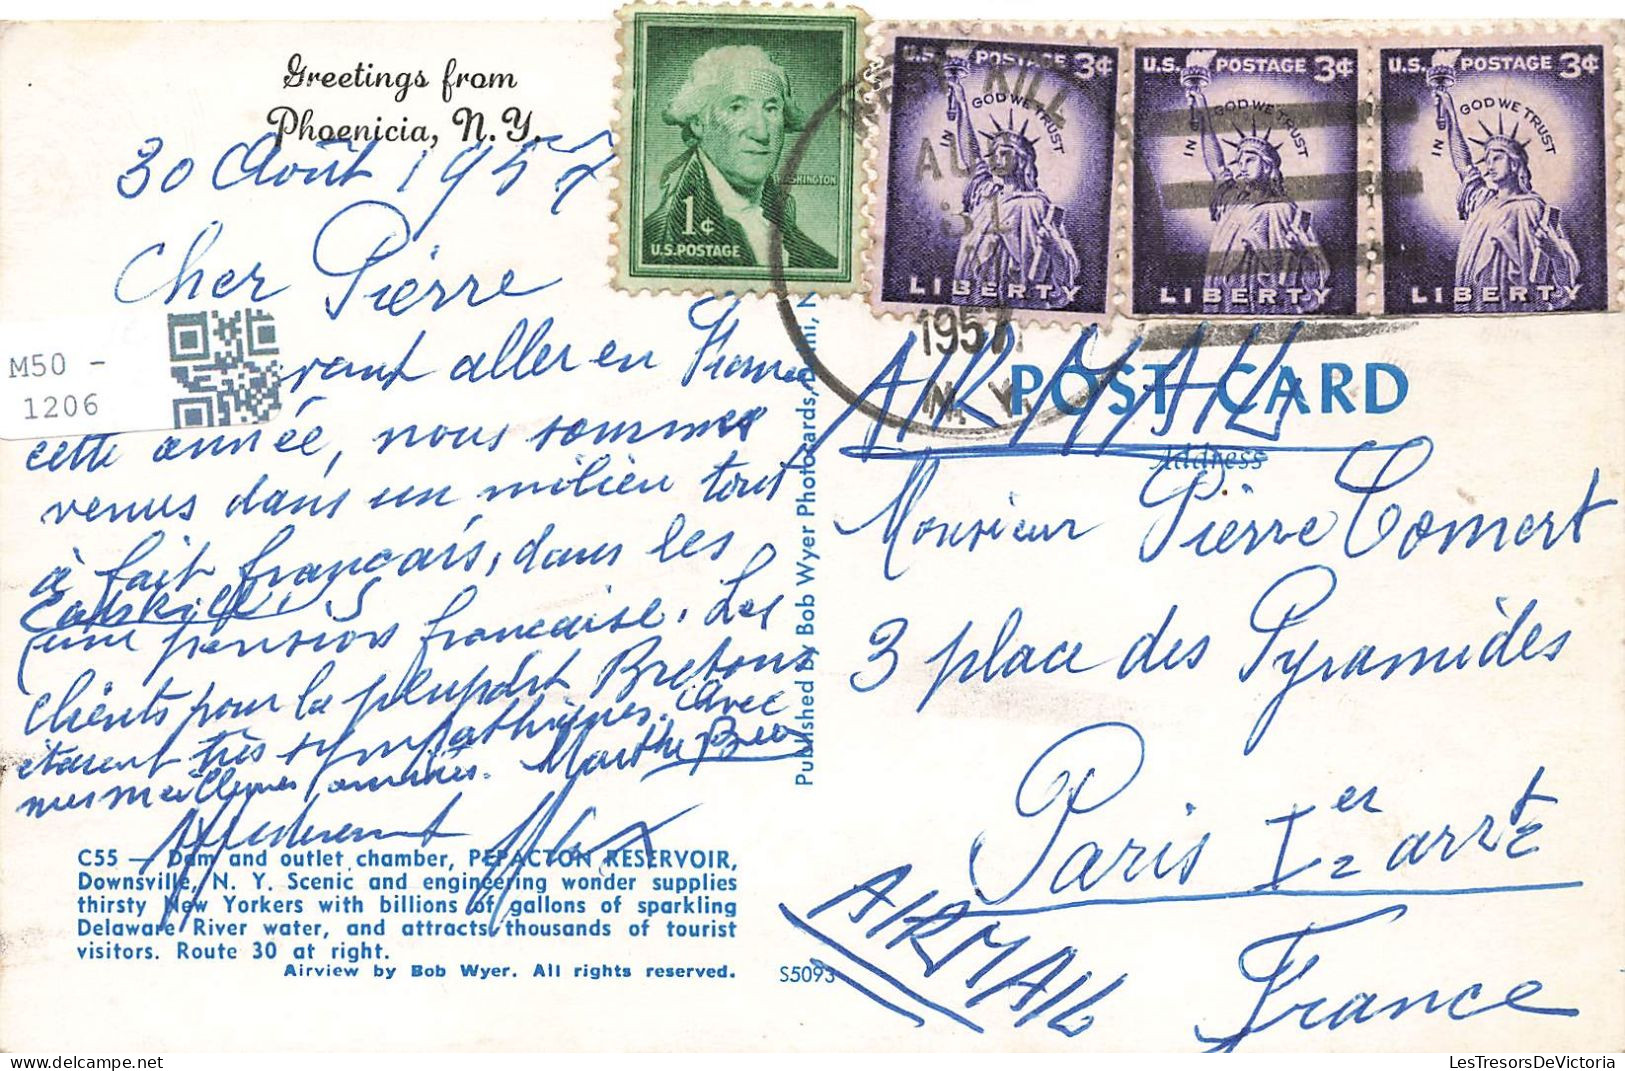 Greetings from
Phoenicia, N.Y.
30 Août 1957
Cher Pierre
aller en
cette année, nous sommes
venus dans un milieu tout
à fait français, dans les
Catskills
(une pension française. Les
clients pour la plupart Bretons
étaient très sympathiques. Avec
mes meilleures amitiés. Marthe
C55 — Dam and outlet chamber, PEPACTON RESERVOIR,
Downsville, N. Y. Scenic and engineering wonder supplies
thirsty New Yorkers with billions of gallons of sparkling
Delaware River water, and attracts thousands of tourist
visitors. Route 30 at right.
Airview by Bob Wyer. All rights reserved.
S5093
M50 -
1206
Published by Bob Wyer Photocards,
WASHINGTON
1¢
U.S. POSTAGE
U.S. POSTAGE 3¢
IN GOD WE TRUST
LIBERTY
U.S. POSTAGE 3¢
IN GOD WE TRUST
LIBERTY
U.S. POSTAGE 3¢
IN GOD WE TRUST
LIBERTY
WEST KILL
AUG
31
1957
N.Y.
POST CARD
AIR MAIL
Address
Monsieur Pierre Comert
3 place des Pyramides
Paris Ier arrt
AIR MAIL
France
LesTresorsDeVictoria